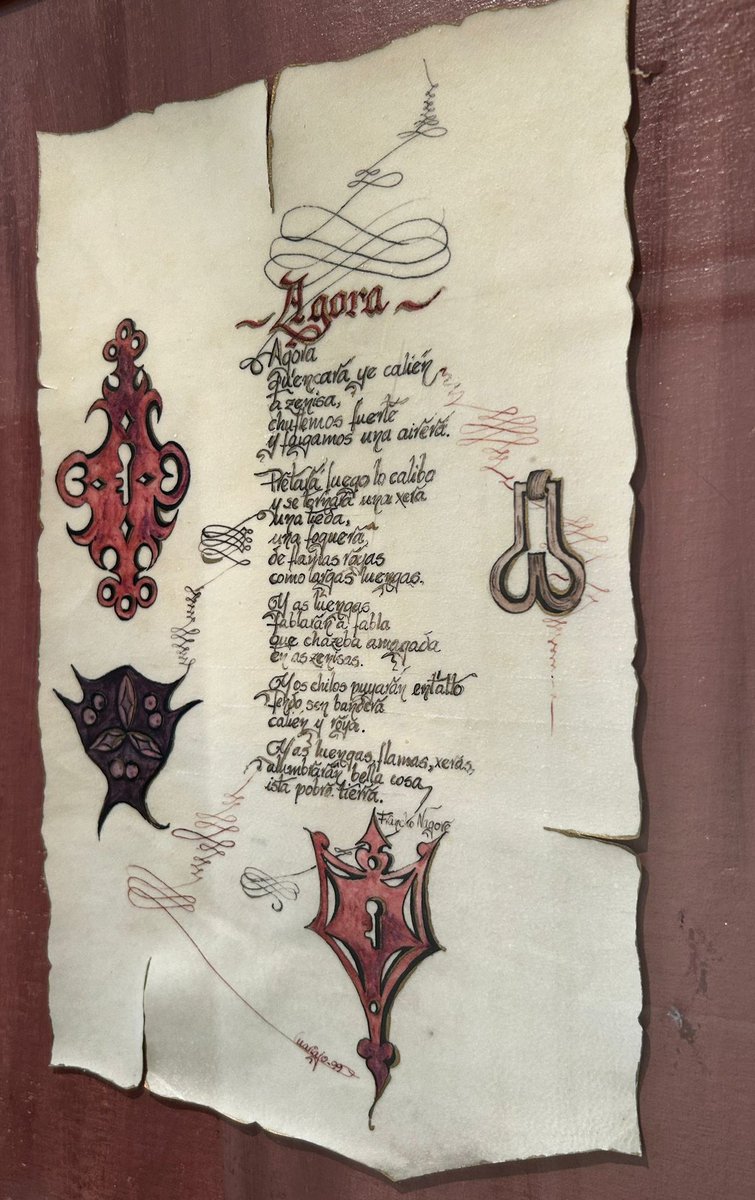 ~ Agora ~
Agora
qu'encara ye calién
a zenisa,
chuflemos fuerte
y faigamos una airera.
Pretará luego lo calibo
y se tornará una xera
una tieda,
una foguera,
de flamas royas
como largas luengas.
Y as luengas
fablarán a fabla
que chazeba amagada
en as zenisas.
Y os chilos puyarán entalto
fendo sen bandera
calién y roya.
Y as luengas, flamas, xeras,
alumbrarán bella cosa
ista pobre tierra.
Francho Nagore